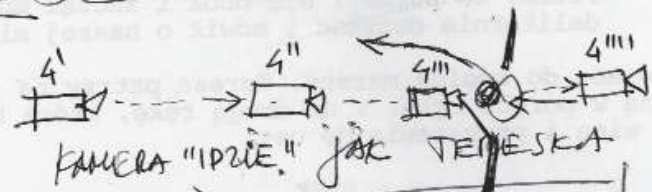 4' 4'' 4''' 4''''
KAMERA "IDZIE" JAK TERESKA